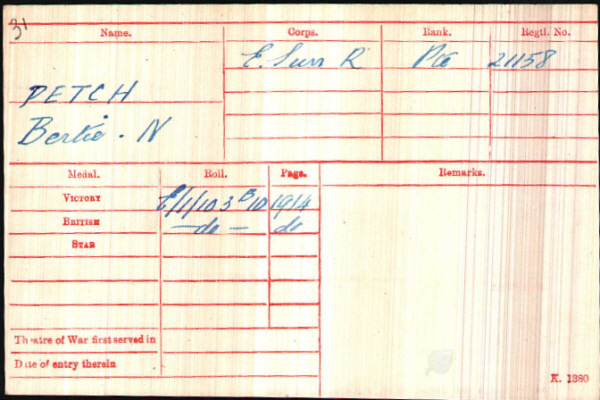 31
Name. Corps. Rank. Regtl. No.
E. Surr R Pte 21158
PETCH
Bertie. N
Medal. Roll. Page. Remarks.
VICTORY E/1/103 B10 1914
BRITISH —do— do
STAR
Theatre of War first served in
Date of entry therein
K. 1380